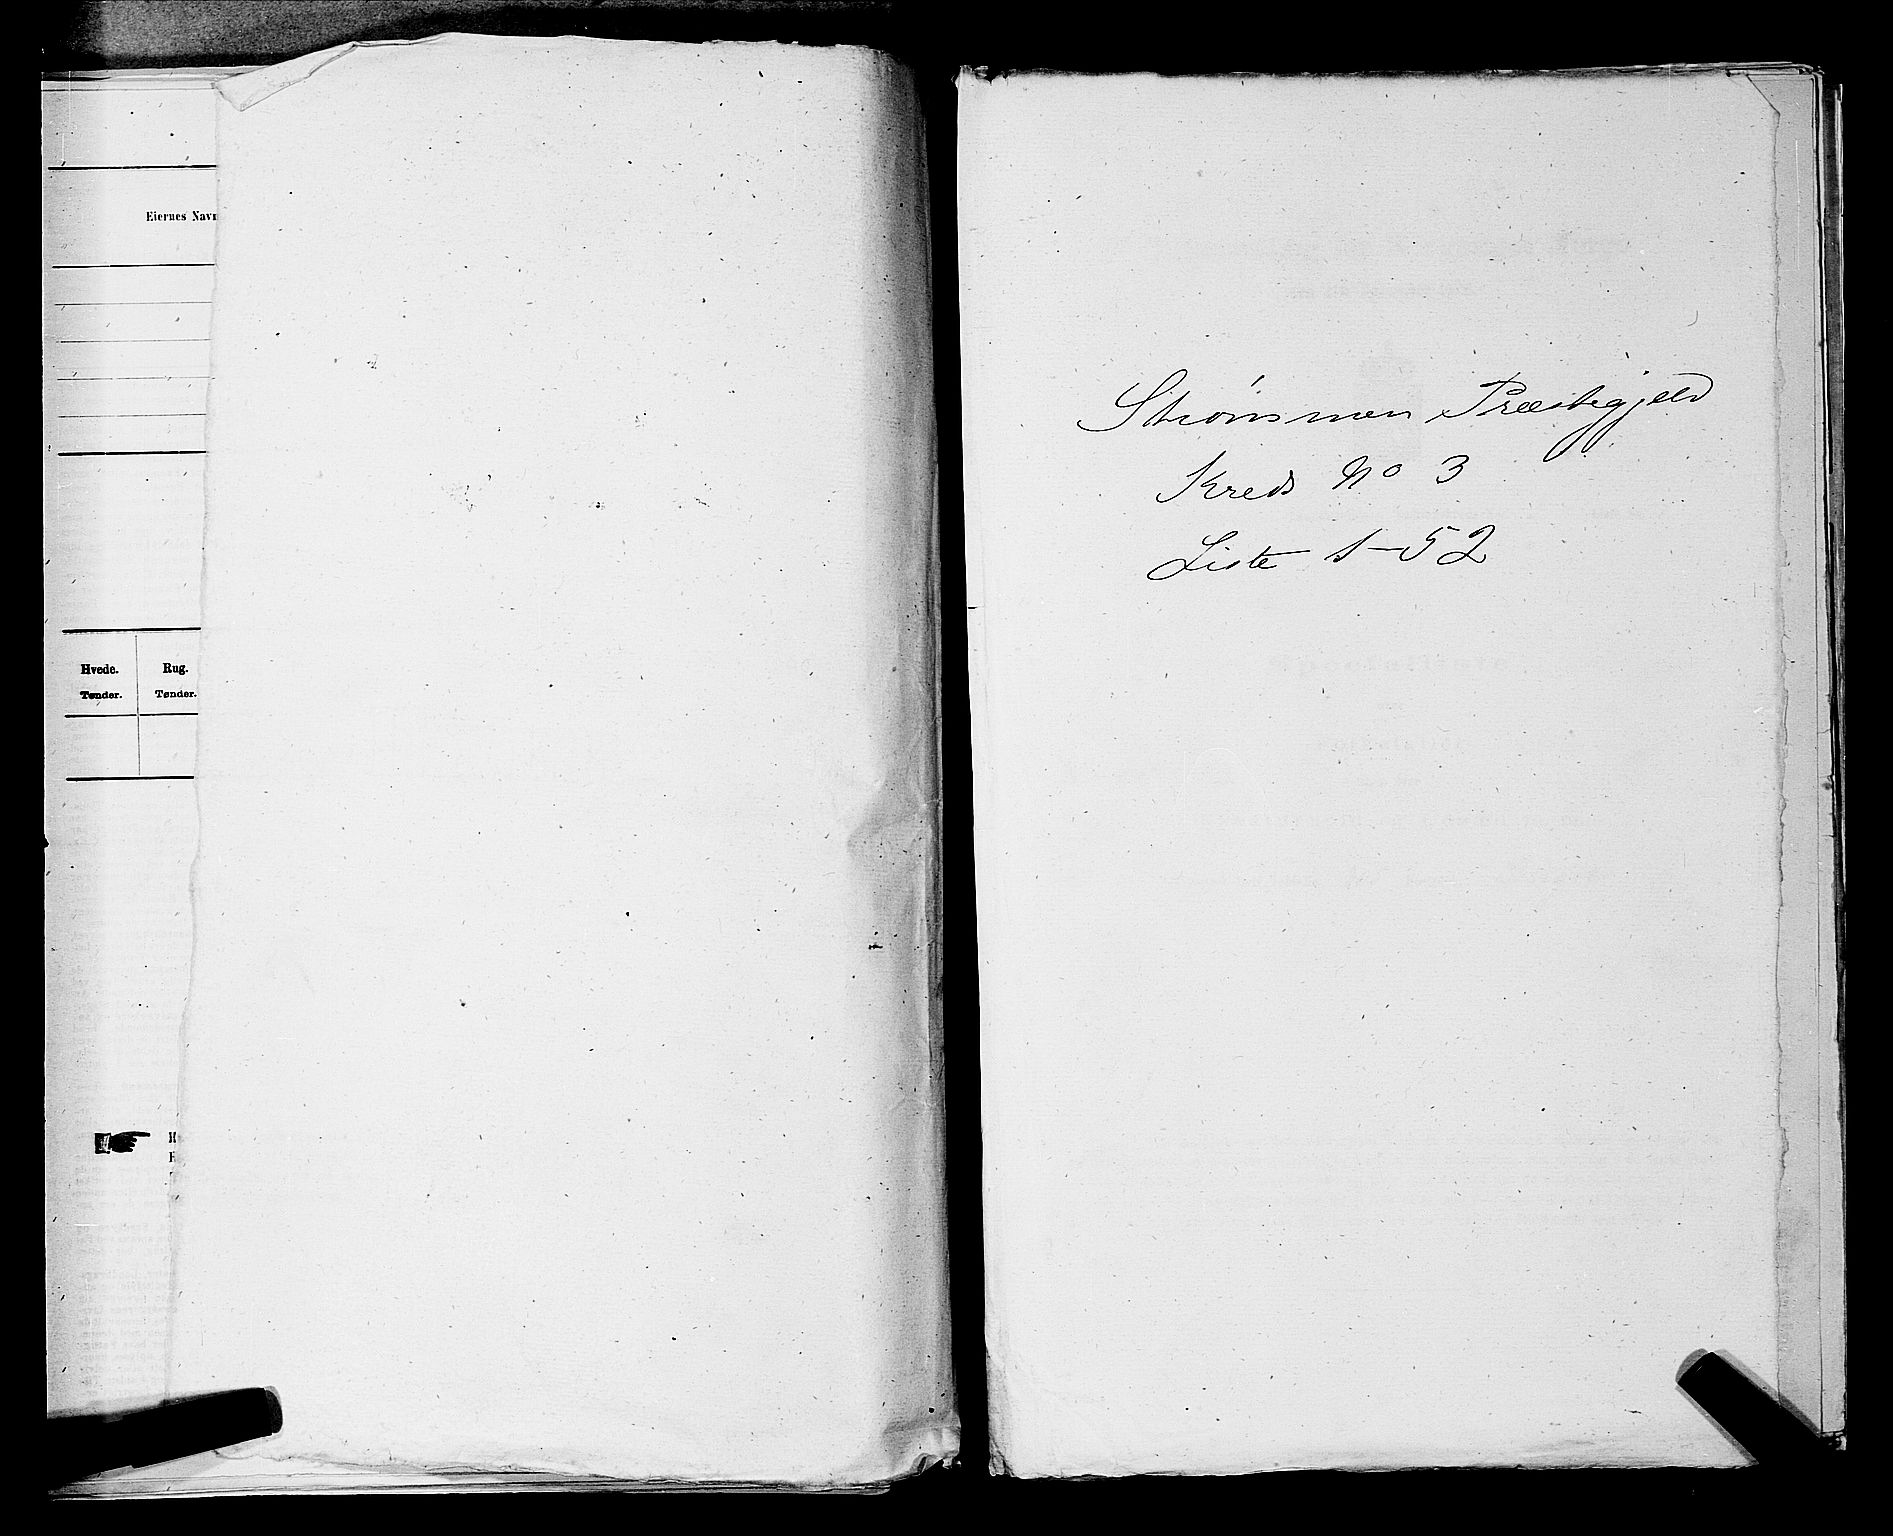 Eiernes Navn
Hvede. Rug.
Tønder. Tønder.
Strømmen Præstegjeld
Kreds No 3
Liste 1-52